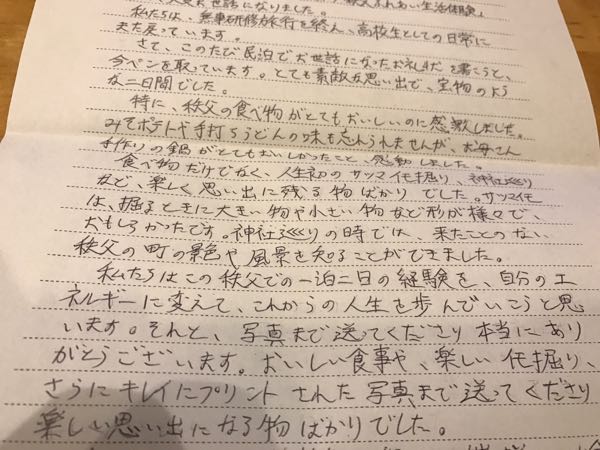 大変お世話になりました。
私たちは、無事研修旅行を終え、高校生としての日常に
また戻っています。
さて、このたび民泊でお世話になったお礼状を書こうと、
今ペンを取っています。とても素敵な思い出で、宝物のよう
な二日間でした。
特に、秩父の食べ物がとてもおいしいのに感激しました。
みそポテトや手打ちうどんの味も忘れられませんが、お母さん
手作りの鍋がとてもおいしかったこと、感動しました。
食べ物だけでなく、人生初のサツマイモ掘り、神社巡り
など、楽しく思い出に残る物ばかりでした。サツマイモ
は、掘るときに大きい物や小さい物など形が様々で、
おもしろかったです。神社巡りの時では、来たことのない
秩父の町の景色や風景を知ることができました。
私たちはこの秩父での一泊二日の経験を、自分のエ
ネルギーに変えて、これからの人生を歩んでいこうと思
います。それと、写真まで送ってくださり本当にあり
がとうございます。おいしい食事や、楽しいイモ掘り、
さらにキレイにプリントされた写真まで送ってくださり
楽しい思い出になる物ばかりでした。